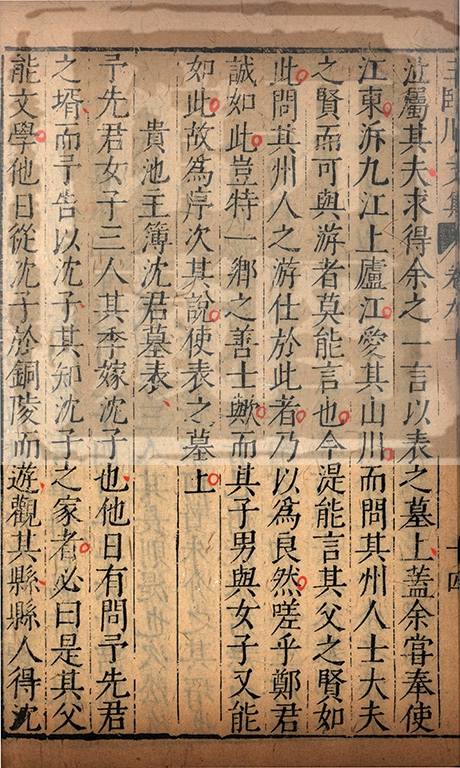 王臨川文集 卷九 十四
泣屬其夫求得余之一言以表之墓上蓋余嘗奉使
江東泝九江上廬江愛其山川而問其州人士大夫
之賢而可與游者莫能言也今湜能言其父之賢如
此問其州人之游仕於此者乃以為良然嗟乎鄭君
誠如此豈特一鄉之善士歟而其子男與女子又能
如此故為序次其說使表之墓上
貴池主簿沈君墓表
予先君女子三人其季嫁沈子也他日有問予先君
之壻而予告以沈子其知沈子之家者必曰是其父
能文學他日從沈子於銅陵而遊觀其縣縣人得沈